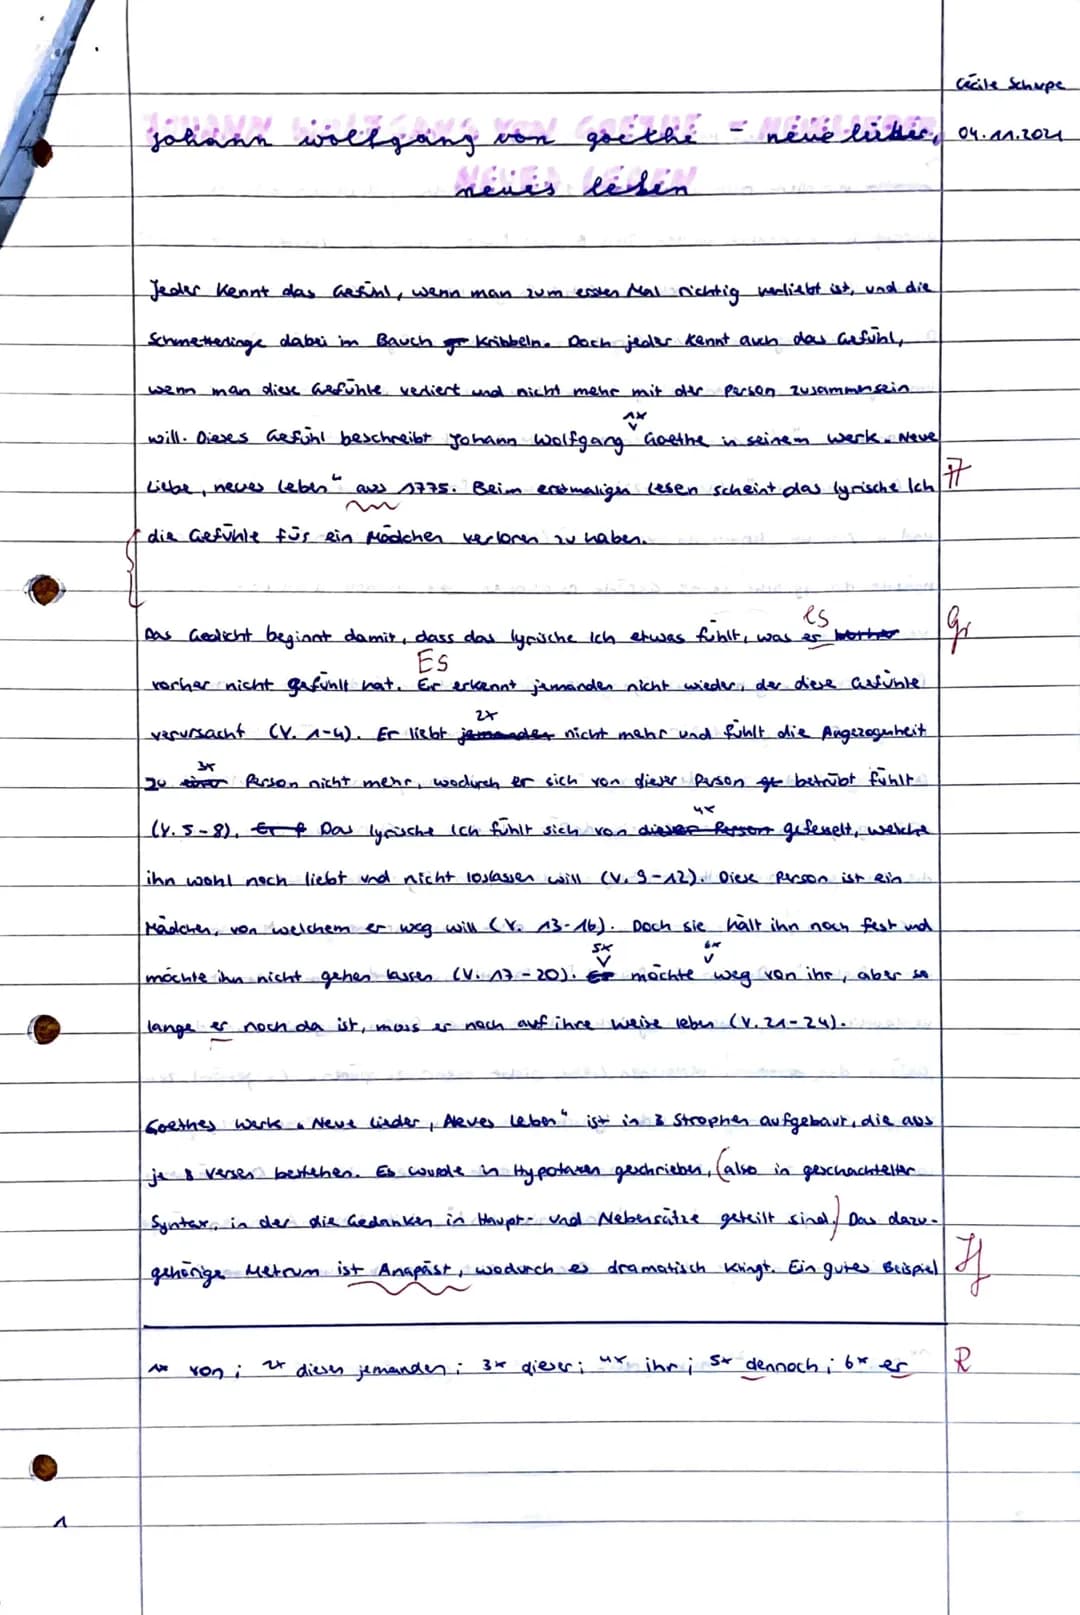 Cécile Schupe
johann wolfgang von goethe - neue lieder, 04.11.2021
neues leben
Jeder kennt das Gefühl, wenn man zum ersten Mal richtig verliebt ist, und die
Schmetterlinge dabei im Bauch kribbeln. Doch jeder kennt auch das Gefühl,
wenn man diese Gefühle verliert und nicht mehr mit der Person zusammensein
1x
will. Dieses Gefühl beschreibt Johann Wolfgang Goethe in seinem Werk „Neue
Liebe, neues Leben“ aus 1775. Beim erstmaligen Lesen scheint das lyrische Ich
die Gefühle für ein Mädchen verloren zu haben.
es Gr
Das Gedicht beginnt damit, dass das lyrische Ich etwas fühlt, was er
Es
vorher nicht gefühlt hat. Er erkennt jemanden nicht wieder, der diese Gefühle
2x
verursacht (V. 1-4). Er liebt jemanden nicht mehr und fühlt die Angezogenheit
3x
zu einer Person nicht mehr, wodurch er sich von dieser Person betrübt fühlt
4x
(V. 5-8). Das lyrische Ich fühlt sich von dieser Person gefesselt, welche
ihn wohl noch liebt und nicht loslassen will (V. 9-12). Diese Person ist ein
Mädchen, von welchem er weg will (V. 13-16). Doch sie hält ihn noch fest und
5x 6x
möchte ihn nicht gehen lassen (V. 17-20). Er möchte weg von ihr, aber so
lange er noch da ist, muss er noch auf ihre Weise leben (V. 21-24).
Goethes Werk „Neue Lieder, Neues Leben“ ist in 3 Strophen aufgebaut, die aus
je 8 Versen bestehen. Es wurde in Hypotaxen geschrieben, (also in geschachtelter
Syntax, in der die Gedanken in Haupt- und Nebensätze geteilt sind.) Das dazu-
gehörige Metrum ist Anapäst, wodurch es dramatisch klingt. Ein gutes Beispiel
1x von; 2x diesen jemanden; 3x dieser; 4x ihr; 5x dennoch; 6x er R
1